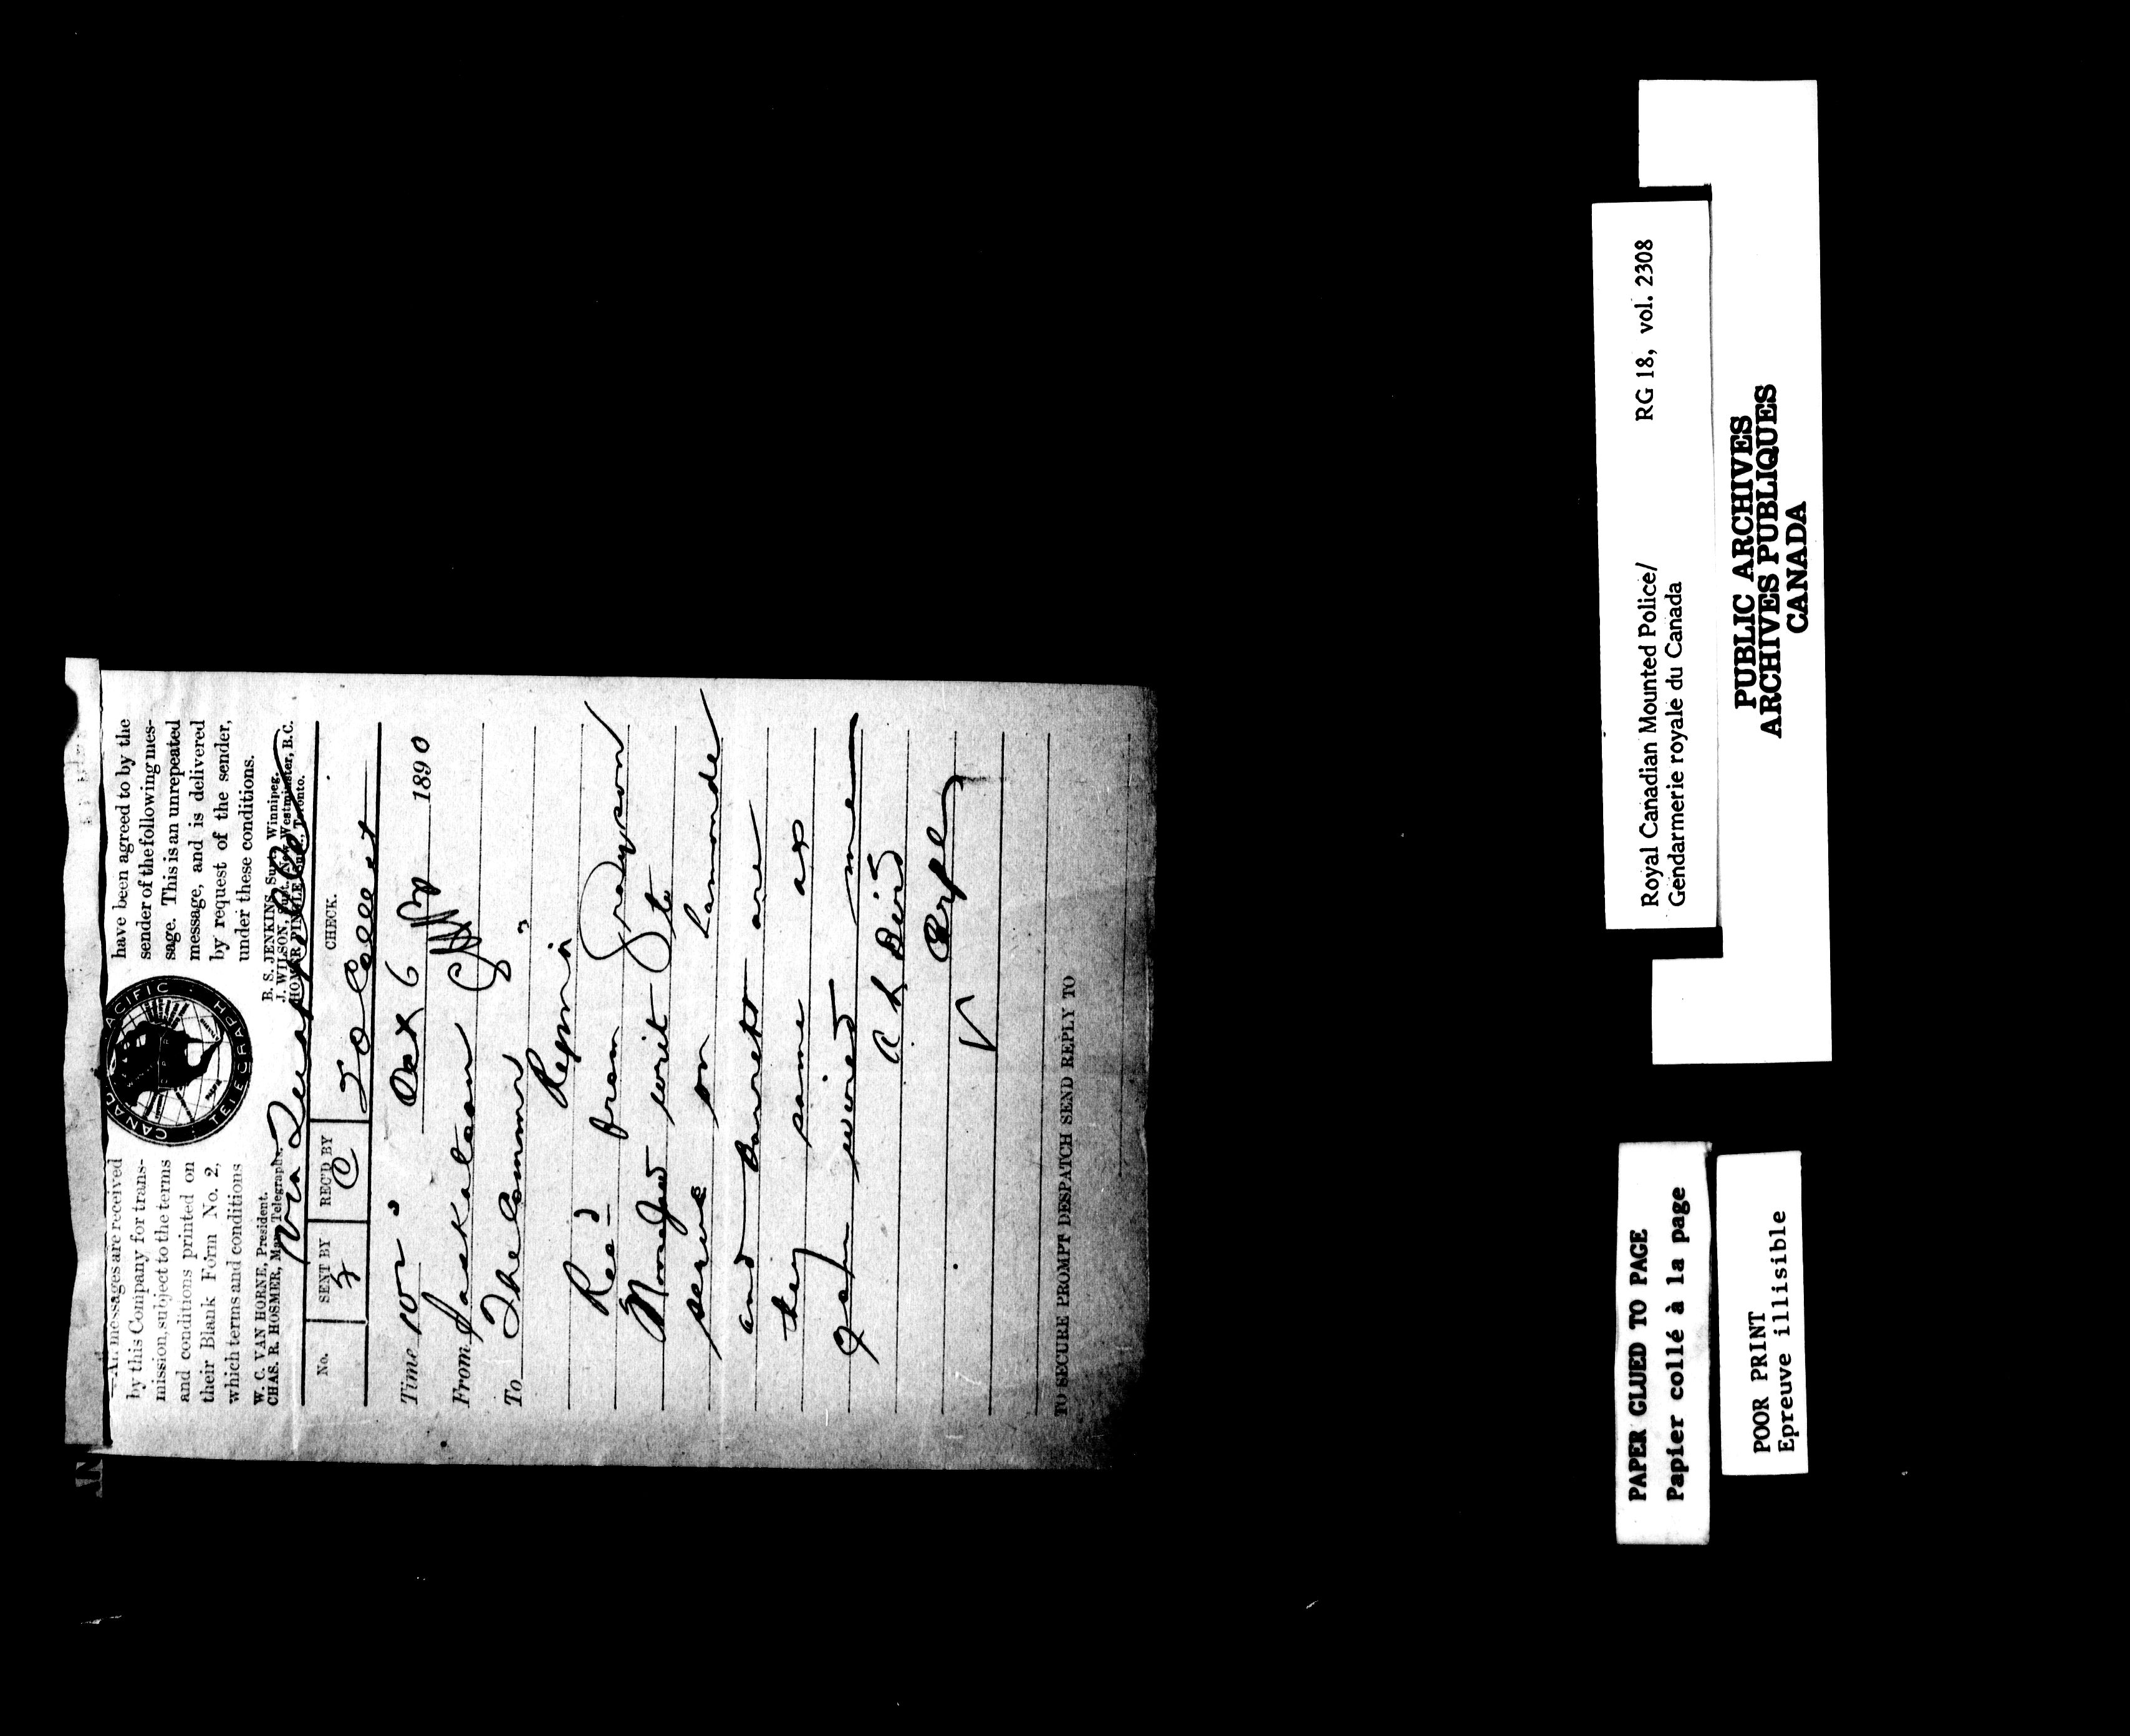 —All messages are received
by this Company for trans-
mission, subject to the terms
and conditions printed on
their Blank Form No. 2,
which terms and conditions
have been agreed to by the
sender of the following mes-
sage. This is an unrepeated
message, and is delivered
by request of the sender,
under these conditions.
CANAD PACIFIC
TELEGRAPH
W. C. VAN HORNE, President.
CHAS. R. HOSMER, Man. Telegraphs.
B. S. JENKINS, Supt. Winnipeg.
J. WILSON, Supt. New Westminster, B.C.
HOMER PINGLE, Supt., Toronto.
Via
No. SENT BY REC'D BY CHECK.
C 20 Collect
Time Oct 6 1890
From Saskatoon
To The Commr
Regina
Recd from Grayson
Moosejaw writ to
serve on Lamonde
and Barrett are
they same as
John wired me
TO SECURE PROMPT DESPATCH SEND REPLY TO
Royal Canadian Mounted Police/ RG 18, vol. 2308
Gendarmerie royale du Canada
PUBLIC ARCHIVES
ARCHIVES PUBLIQUES
CANADA
PAPER GLUED TO PAGE
Papier collé à la page
POOR PRINT
Epreuve illisible